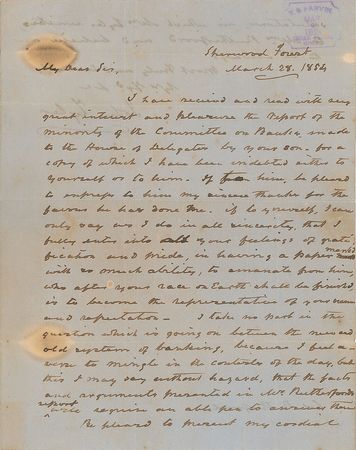 Sherwood Forest
March 28. 1854
My Dear Sir,
I have received and read with very
great interest and pleasure the report of the
minority of the Committee on Banks, made
to the House of Delegates by your son. for a
copy of which I have been indebted either to
yourself or to him. If to him, be pleased
to express to him my sincere thanks for the
favour he has done me. if to yourself, I can
only say as I do in all sincerity, that I
fully enter into all your feelings of grati-
fication and pride, in having a paper marked
with so much ability, to emanate from him
who after your race on Earth shall be finished
is to become the representative of your name
and reputation— I take no part in the
question which is going on between the new and
old system of banking, because I feel a-
verse to mingle in the contests of the day, but
this I may say without hazard, that the facts
and arguments presented in Mr Rutherfoord's
report will require an able pen to answer them
Be pleased to present my cordial